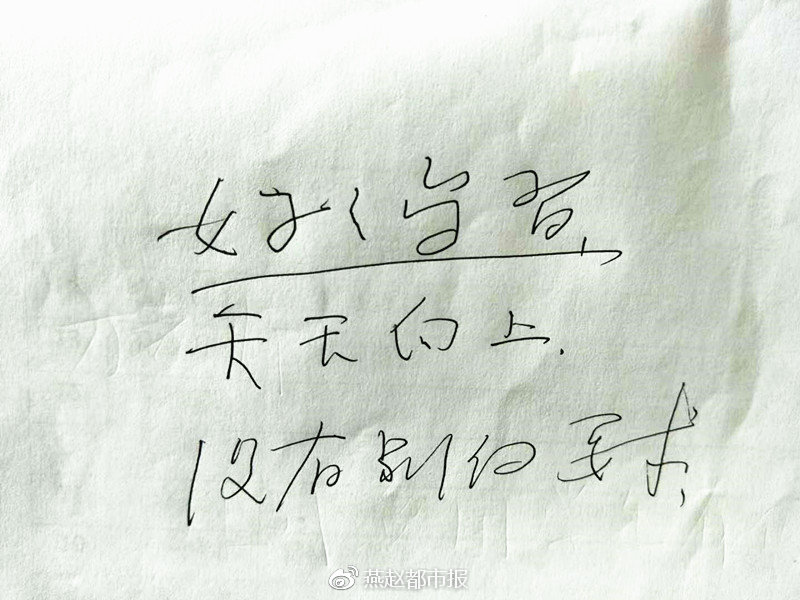 好好学习
天天向上.
没有别的要求
燕赵都市报